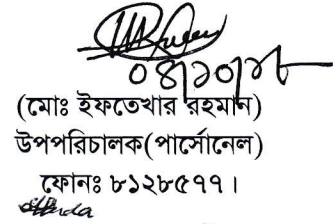 ০৪/১০/১৮
(মোঃ ইফতেখার রহমান)
উপপরিচালক(পার্সোনেল)
ফোনঃ ৮১২৮৫৭৭।